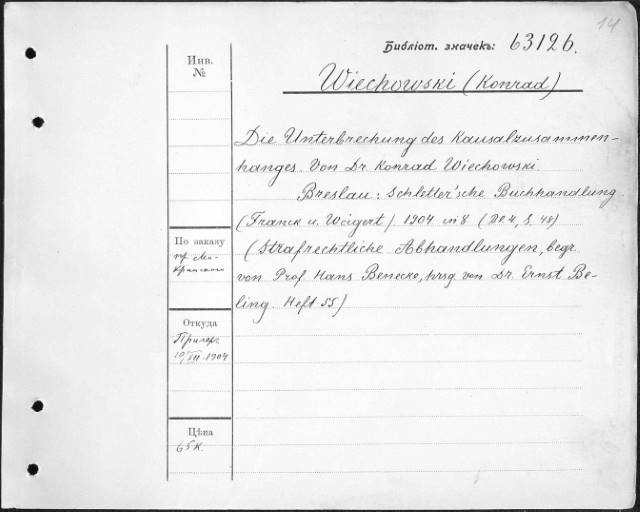 14
Библіот. значекъ: 63126.
Инв.
№
Wiechowski (Konrad)
Die Unterbrechung des Kausalzusammen-
hanges. Von Dr. Konrad Wiechowski.
Breslau: Schletter'sche Buchhandlung
(Franck u. Weigert). 1904 in 8 (
S. 48)
(Strafrechtliche Abhandlungen, begr.
von Prof. Hans Benecke, hrsg. von Dr. Ernst Be-
ling. Heft 55)
По заказу
пр. Ма-
Откуда
10/VII 1904
Цѣна
65 к.